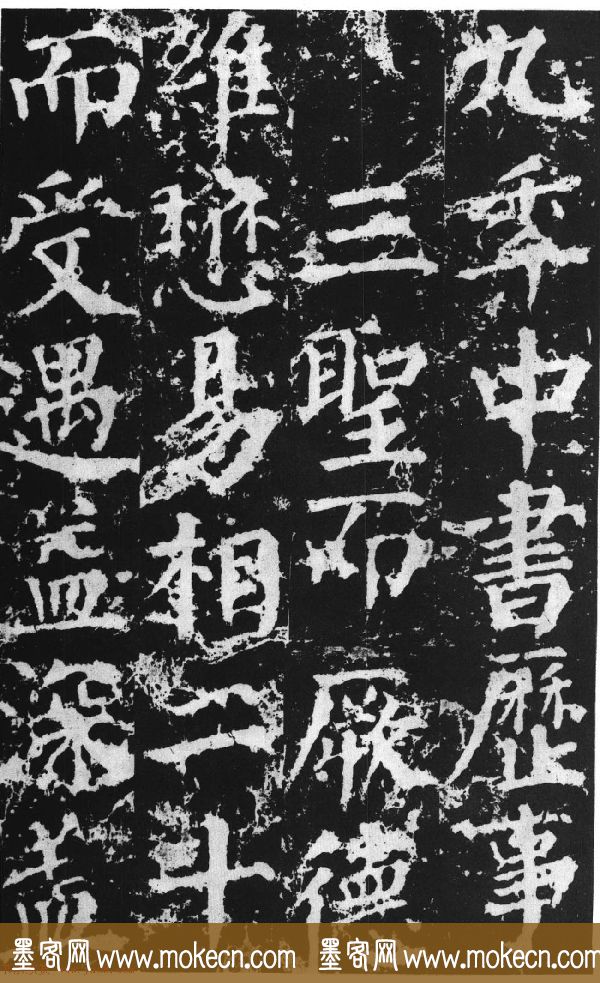 九秊中書歷事
三聖而厥德
維懋易相二十
而受遇益深盖
墨客网 www.mokecn.com 墨客网 www.mokecn.com